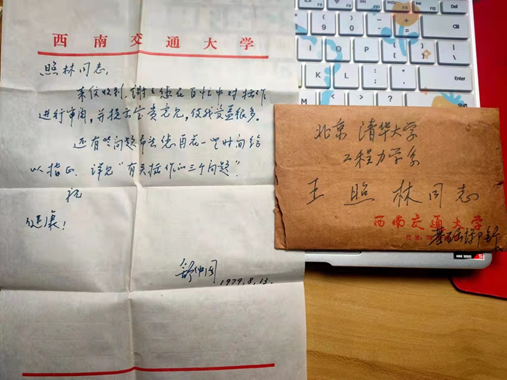 西南交通大学
照林同志,
来信收到,谢谢您在百忙中对拙作
进行审阅,并提出宝贵意见,使我受益很多。
还有些问题希望您再花一些时间给
以指正,详见“有关拙作的三个问题”。
祝
健康!
1979.8.13.
北京 清华大学
工程力学系
王照林同志
西南交通大学